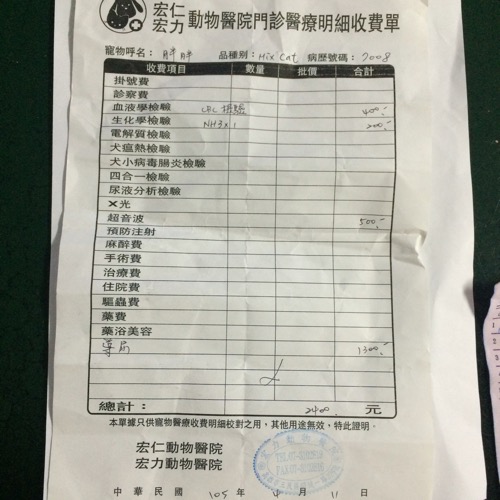 宏仁
宏力 動物醫院門診醫療明細收費單
寵物呼名：胖胖 品種別：Mix Cat 病歷號碼：2008
收費項目 數量 批價 合計
掛號費
診察費
血液學檢驗 CBC 400
生化學檢驗 NH3 x 1 200
電解質檢驗
犬瘟熱檢驗
犬小病毒腸炎檢驗
四合一檢驗
尿液分析檢驗
X光
超音波 500
預防注射
麻醉費
手術費
治療費
住院費
驅蟲費
藥費
藥浴美容
導尿 1300
總計： 2400 元
本單據只供寵物醫療收費明細校對之用，其他用途無效，特此證明。
宏仁動物醫院
宏力動物醫院
中華民國 105 年 4 月 11 日